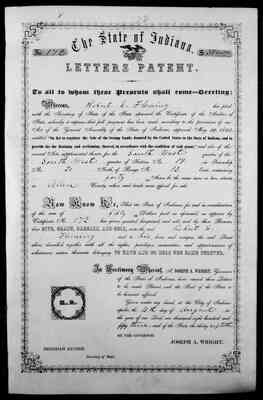 The State of Indiana.
No. 172
$
LETTERS PATENT.
To all to whom these Presents shall come—Greeting:
Whereas, Robert L. Fleming has filed
with the Secretary of State of the State aforesaid the Certificate of the Auditor of
State, whereby it appears that full payment has been made according to the provisions of an
Act of the General Assembly of the State of Indiana, approved May
entitled "An Act to regulate the Swamp Lands donated by the United States to the State of Indiana, and to
provide for the draining and reclaiming thereof, in accordance with the condition of said grant;" and also of the
several Acts supplemental thereto for the South West quarter of the
South West quarter of Section No. 19 in Township
No. North of Range No. 13 East, containing
forty
in Allen County,
Now Know Ye, That the State of Indiana for and in consideration
of the sum of fifty Dollars paid as aforesaid as appears by
Certificate No. 172 has given granted bargained and sold, and by these Presents
does GIVE, GRANT, BARGAIN, AND SELL, unto the said Robert L.
Fleming and to his heirs and assigns the said Tract
above described together with all the rights, privileges, immunities and appurtenances of
whatsoever nature thereunto belonging TO HAVE AND TO HOLD
In Testimony Whereof, I, JOSEPH A. WRIGHT, Governor
of the State of Indiana, have caused these Letters
to be made Patent, and the Seal of the State to
be hereunto affixed.
Given under my hand, at the City of Indian-
apolis the day of August in
the year of our Lord, one thousand eight hundred and
fifty three and of the State the thirty
BY THE GOVERNOR
JOSEPH A. WRIGHT.
Secretary of State.